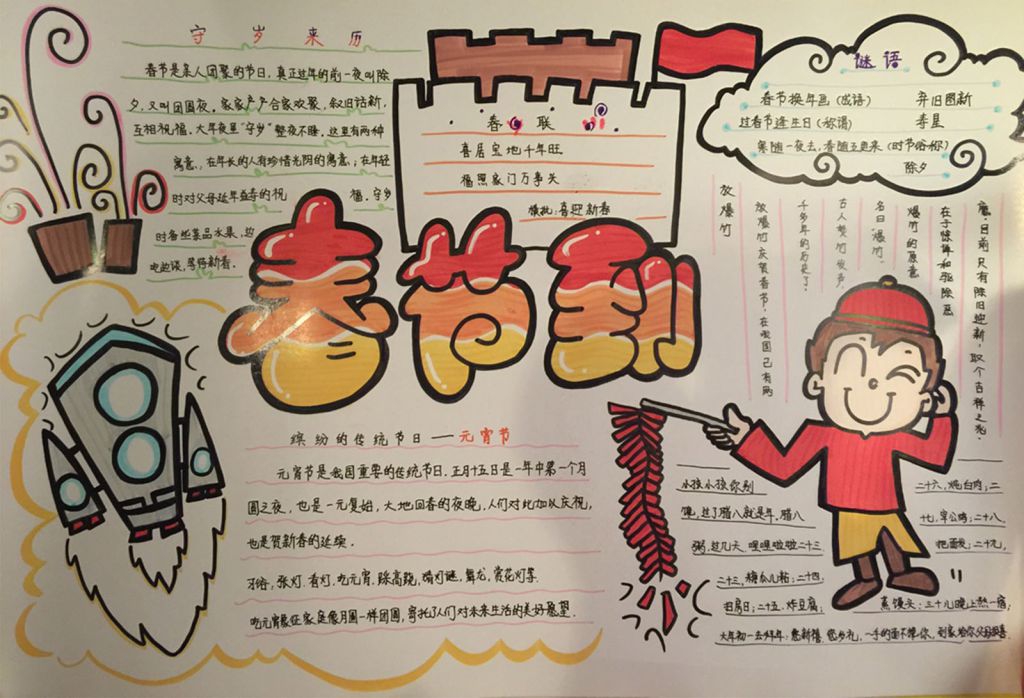 守岁来历
春节是亲人团聚的节日,真正过年的前一夜叫除
夕,又叫团圆夜,家家户户合家欢聚,叙旧话新,
互相祝福,大年夜里“守岁”整夜不睡,这里有两种
寓意,在年长的人有珍惜光阴的寓意;在年轻
时对父母延年益寿的祝 福,守岁
时备些菜品水果,边
吃边谈,等待新春.
春联
喜居宝地千年旺
福照家门万事
横批:喜迎新春
谜语
春节换年画(成语) 弃旧图新
过春节逢生日(称谓) 寿星
寒随一夜去,春随五更来(时节俗称)
除夕
春节到
放爆竹
放爆竹庆贺春节,在我国已有两
千多年的历史了.
古人焚竹发声,
名曰“爆竹”.
爆竹的原意
在于除瘟和驱除恶
魔;目前只有除旧迎新,取个吉祥之兆.
缤纷的传统节日——元宵节
元宵节是我国重要的传统节日,正月十五日是一年中第一个月
圆之夜,也是一元复始,大地回春的夜晚,人们对此加以庆祝,
也是贺新春的延续.
习俗,张灯.看灯,吃元宵,踩高跷,猜灯谜,舞龙,赏花灯等.
吃元宵象征家庭像月圆一样团圆,寄托了人们对未来生活的美好愿望.
小孩小孩你别
馋,过了腊八就是年,腊八
粥,过几天,哩哩啦啦二十三
二十三,糖瓜儿粘;二十四,
扫房日;二十五.炸豆腐;
二十六,炖白肉;二
十七,宰公鸡;二十八,
把面发;二十九,
蒸馒头;三十儿晚上熬一宿;
大年初一去拜年: